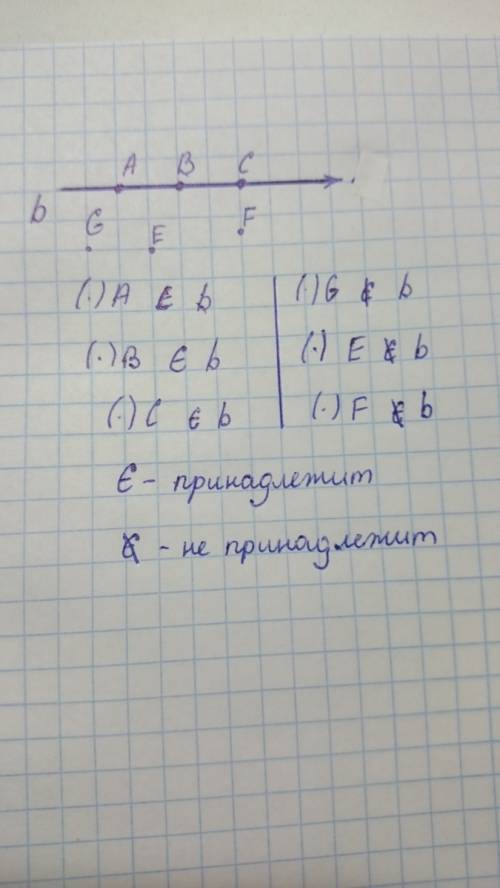 A B C
b
G E F
(·) A ∈ b (·) G ∉ b
(·) B ∈ b (·) E ∉ b
(·) C ∈ b (·) F ∉ b
∈ - принадлежит
∉ - не принадлежит